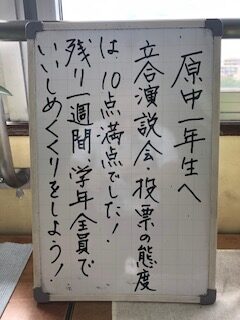 原中一年生へ
立合演説会・投票の態度
は、10点満点でした！
残り一週間、学年全員で
いいしめくくりをしよう！